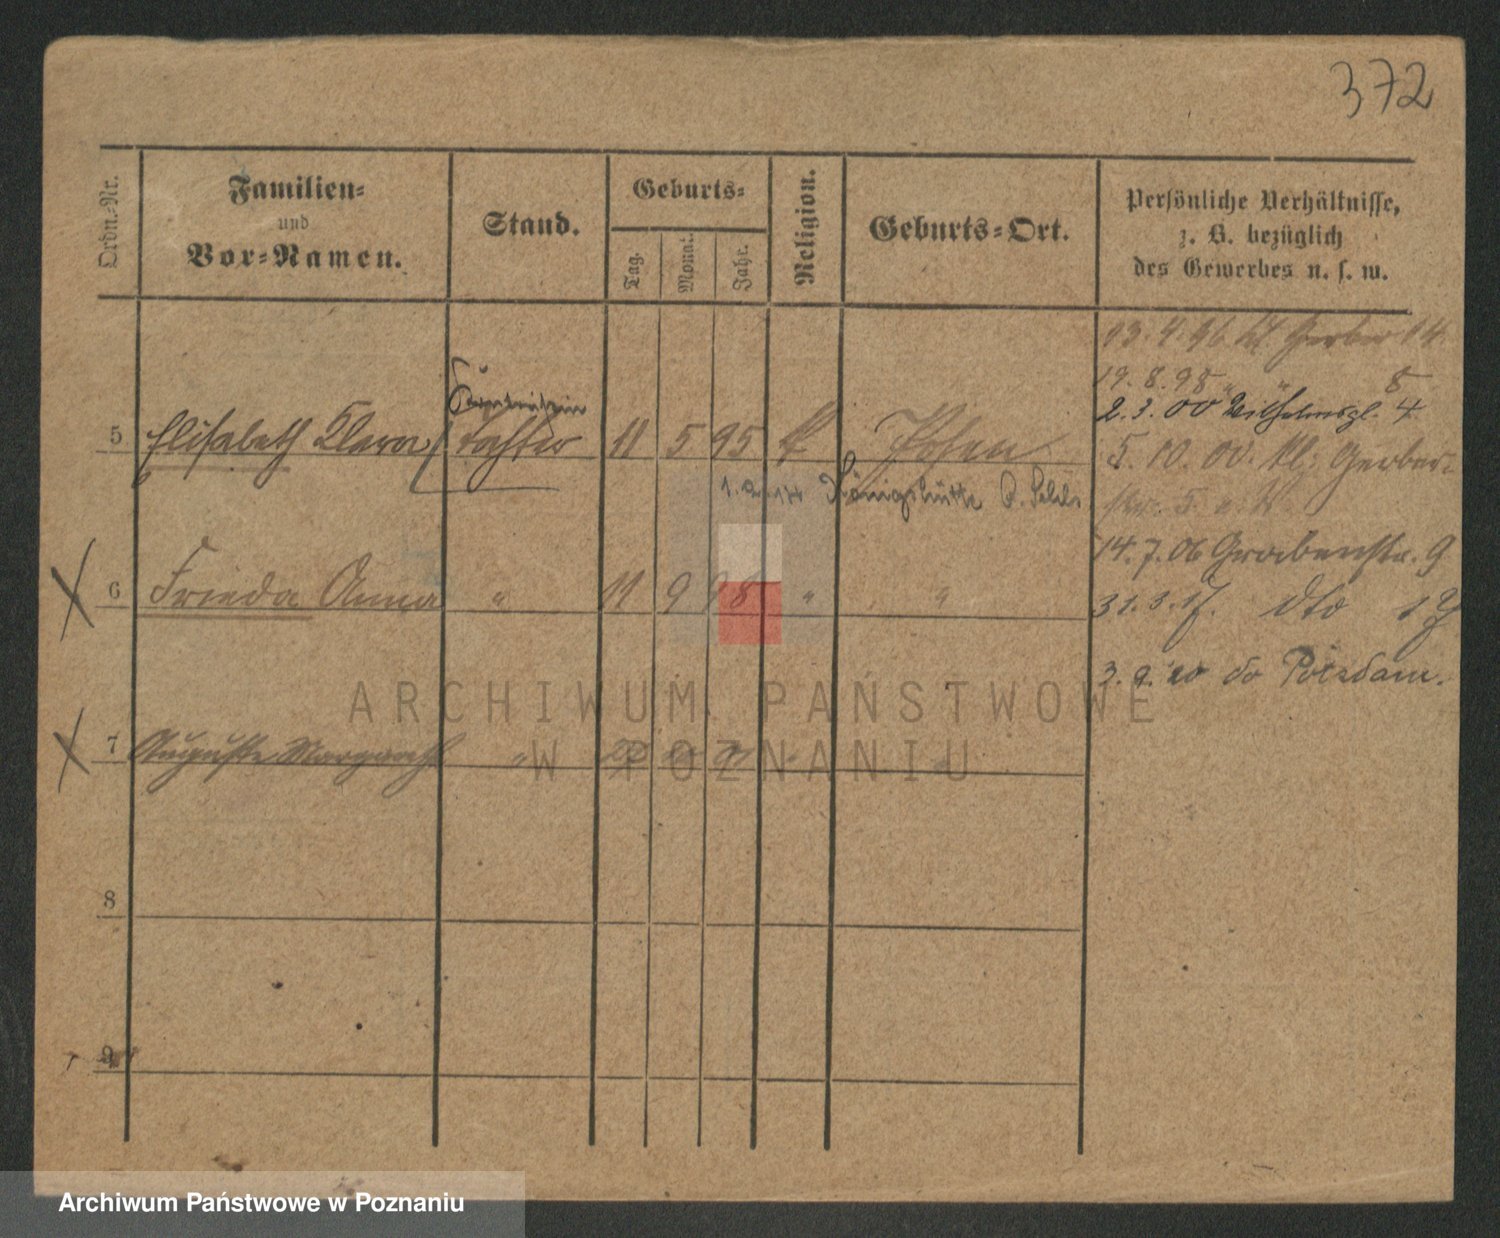 372
Ordn.-Nr.
Familien-
und
Vor-Namen.
Stand.
Geburts-
Tag.
Monat.
Jahr.
Religion.
Geburts-Ort.
Persönliche Verhältnisse,
z. B. bezüglich
des Gewerbes u. s. w.
13. 4. 96. Kl. Gerber 14
19. 8. 98 " " 8
2. 3. 00 Wilhelmspl. 4
5 Elisabeth Klara Tochter 11 5 95 k Posen
5. 10. 00. Kl. Gerber-
str. 5
Königshütte
6 Frieda Anna " 11 9 98 " "
14. 7. 06 Grabenstr. 9
31. 3. 17. dto
3. 9. 20 do Potsdam.
7 Auguste Margareth "
8
9
ARCHIWUM PAŃSTWOWE
W POZNANIU
Archiwum Państwowe w Poznaniu